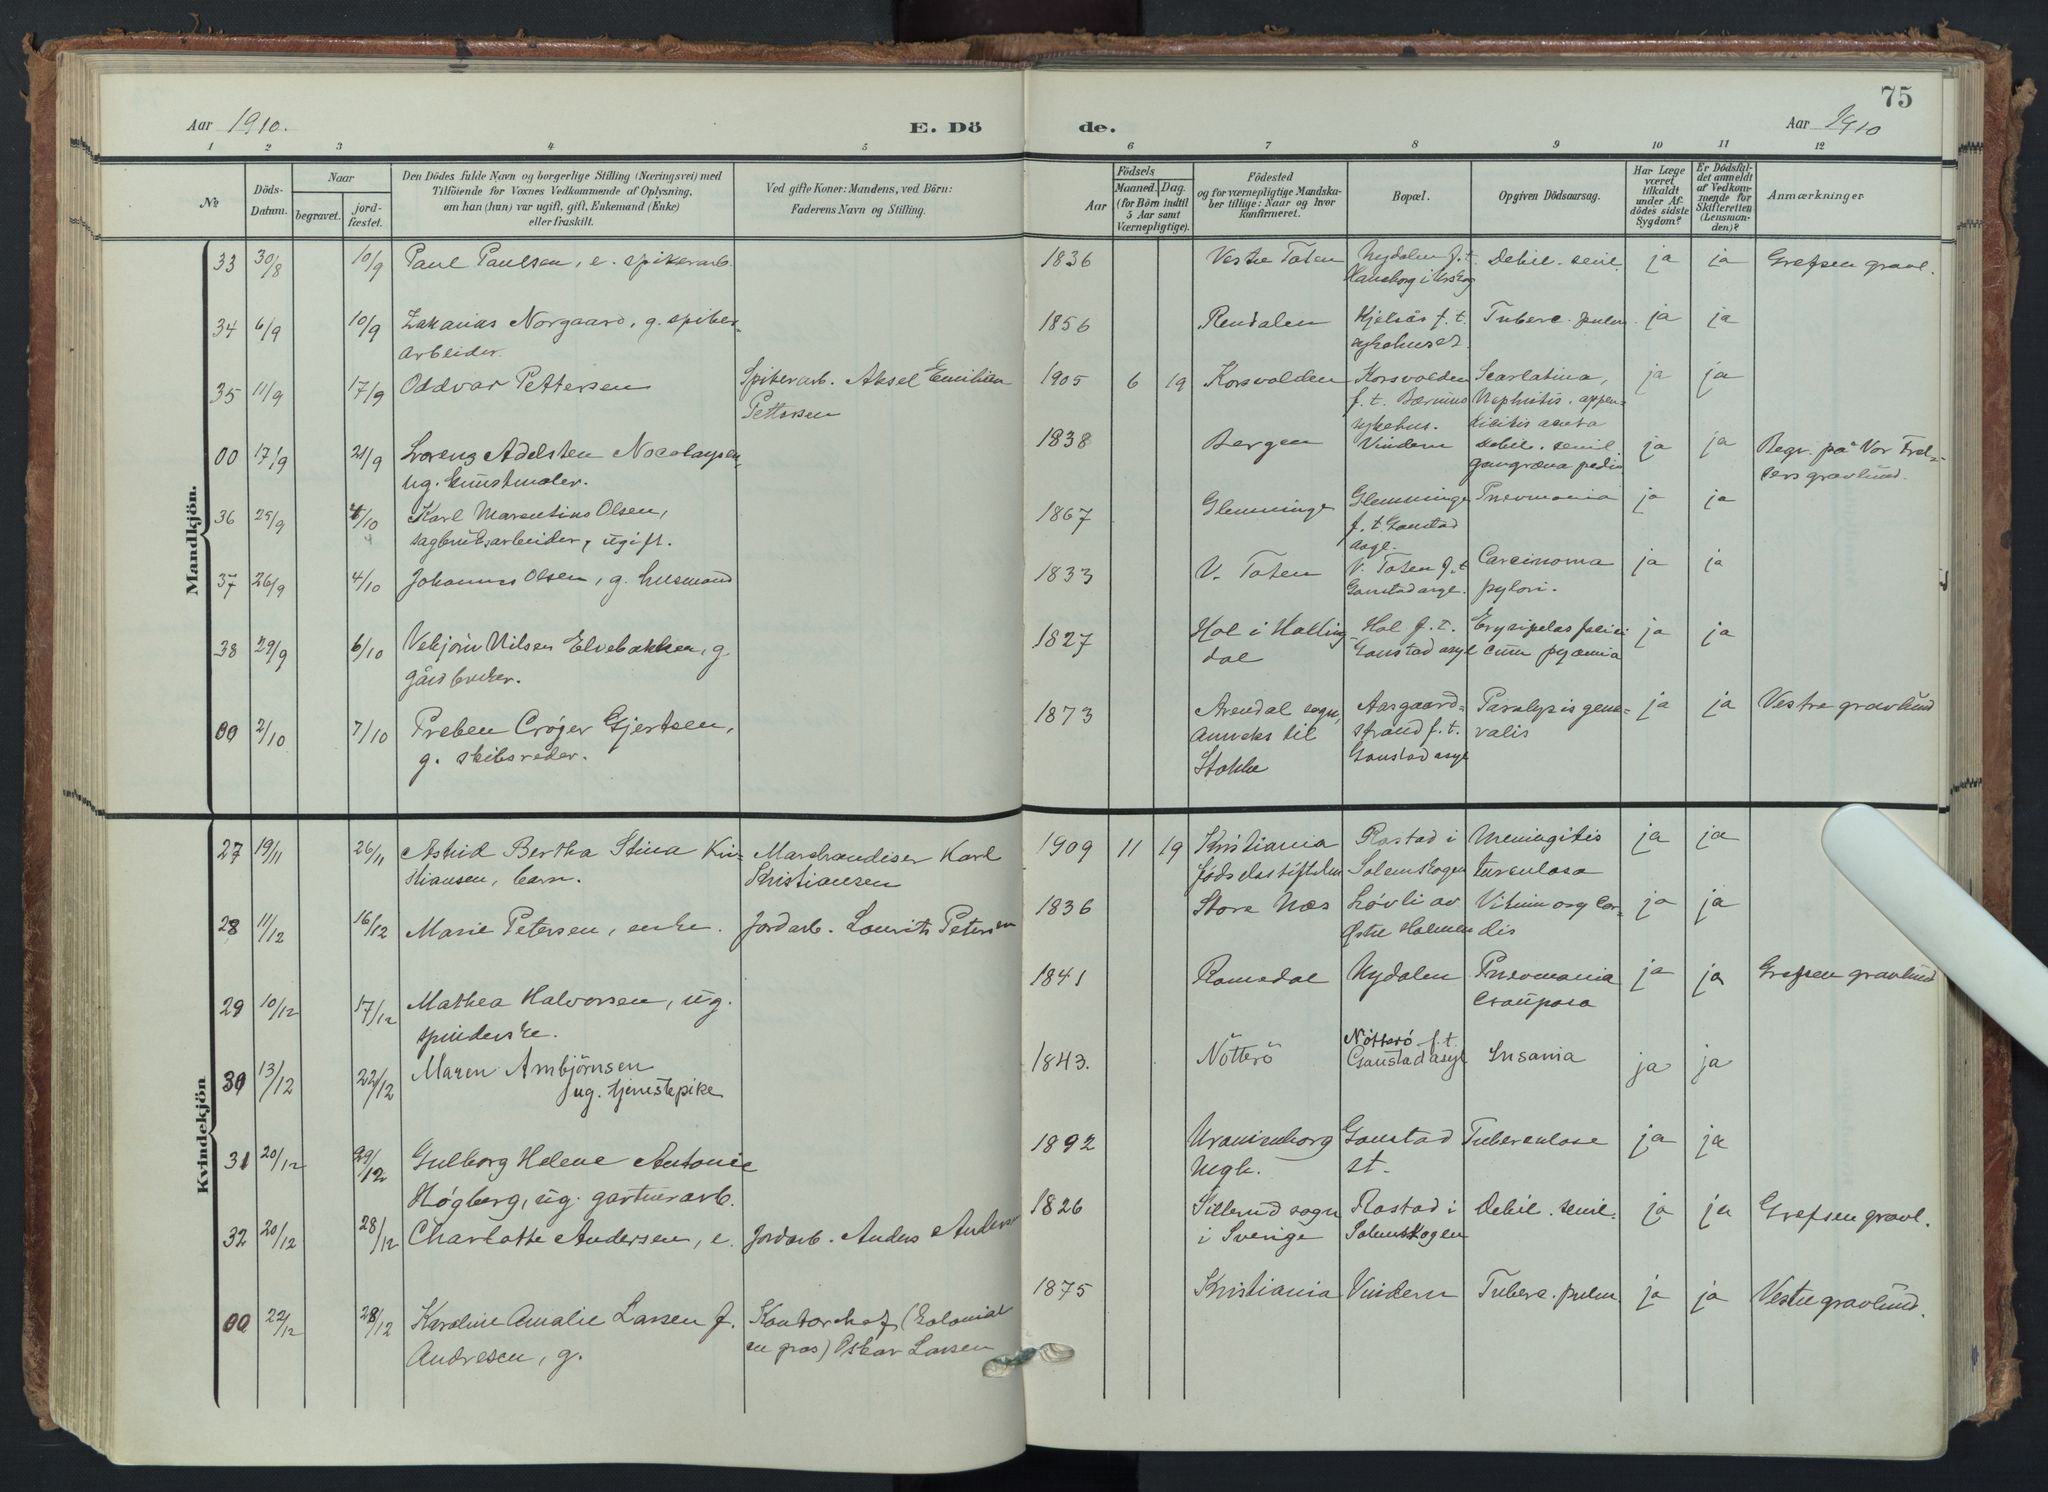 75
Aar 1910.
E. Dö
de.
Aar 1910
1 2 3 4 5 6 7 8 9 10 11 12
No
Döds-
Datum.
Naar
begravet.
jord-
fæstet.
Den Dödes fulde Navn og borgerlige Stilling (Næringsvei) med
Tilföiende for Voxnes Vedkommende af Oplysning,
om han (hun) var ugift, gift, Enkemand (Enke)
eller fraskilt.
Ved gifte Koner: Mandens, ved Börn:
Faderens Navn og Stilling.
Födsels
Aar
Maaned. Dag.
(for Börn indtil
5 Aar samt
Værnepligtige).
Födested
og for værnepligtige Mandska-
ber tillige: Naar og hvor
konfirmeret.
Bopæl.
Opgiven Dödsaarsag.
Har Læge
været
tilkaldt
under Af-
dödes sidste
Sygdom?
Er Dödsfal-
det anmeldt
af Vedkom-
mende for
Skifteretten
(Lensman-
den)?
Anmærkninger
Mandkjön.
33 30/8 10/9 Paul Paulsen, e. spikerarb. 1836 Vestre Toten Nydalen f. t. Debil. senil. ja ja Grefsen gravl.
Hansborg i Urskog
34 6/9 10/9 Zakarias Norgaard, g. spiker- 1856 Rendalen Kjelsås f. t. Tuberc. pulm. ja ja
arbeider. sykehuset.
35 11/9 17/9 Oddvar Pettersen Spikerarb. Aksel Emilian 1905 6 19 Korsvolden Korsvolden Scarlatina, ja ja
Pettersen f. t. Bærums Nephritis. appen-
sykehus. dicitis acuta
00 17/9 21/9 Lorenz Adelsten Nocolaysen, 1838 Bergen Vindern debil. senil. ja ja Begr. på Vor Frel-
ug. kunstmaler. gangræna pedis sers gravlund.
36 25/9 4/10 Karl Marentius Olsen, 1867 Glemminge Glemminge Pneomonia ja ja
sagbruksarbeider, ugift. f. t. Gaustad
asyl.
37 26/9 4/10 Johannes Olsen, g. husmand 1833 V. Toten V. Toten f. t. Carcinoma ja ja
Gaustad asyl. pylori.
38 29/9 6/10 Vebjörn Nilsen Elvebakken, g. 1827 Hol i Halling- Hol f. t. Erysipelas faciei ja ja
gårdbruker. dal Gaustad asyl cum pyæmia
00 2/10 7/10 Preben Crøger Gjertsen, 1873 Arendal sogn, Aasgaard- Paralysis gene- ja ja Vestre gravlund
g. skibsreder. anneks til strand f. t. ralis
Stokke Gaustad asyl
Kvindekjön
27 19/11 26/11 Astrid Bertha Stina Kri- Marchandiser Karl 1909 11 19 Kristiania Rastad i Meningitis ja ja
stiansen, barn. Kristiansen fødselsstiftelsen Solemskogen
28 11/12 16/12 Marie Petersen, enke. Jordarb. Laurits Petersen 1836 Store Næs Løvli av Vitium org Cor- ja ja
Østre Holmen dis
29 10/12 17/12 Mathea Halvorsen, ug. 1841 Romedal Nydalen Pneomonia ja ja Grefsen gravlund
spinderske. crouposa
30 13/12 22/12 Maren Ambjörnsen 1843. Nötterö Nötterö f. t. Insania ja ja
ug. tjenestepike Gaustad asyl
31 20/12 29/12 Gulborg Helene Antonie 1892 Uranienborg Gaustad Tuberculose ja ja
Høgberg, ug. gartnerarb. mgh. st.
32 20/12 28/12 Charlotte Andersen, e. Jordarb. Anders Anders 1826 Sillerud sogn Rastad i Debil. senil. ja ja Grefsen gravl.
i Sverige Solemskogen
00 22/12 28/12 Karoline Amalie Larsen f. Kontorchef (Kolonial 1875 Kristiania Vindern Tuberc. pulm. ja ja Vestre gravlund.
Andresen, g. en gros) Oskar Larsen